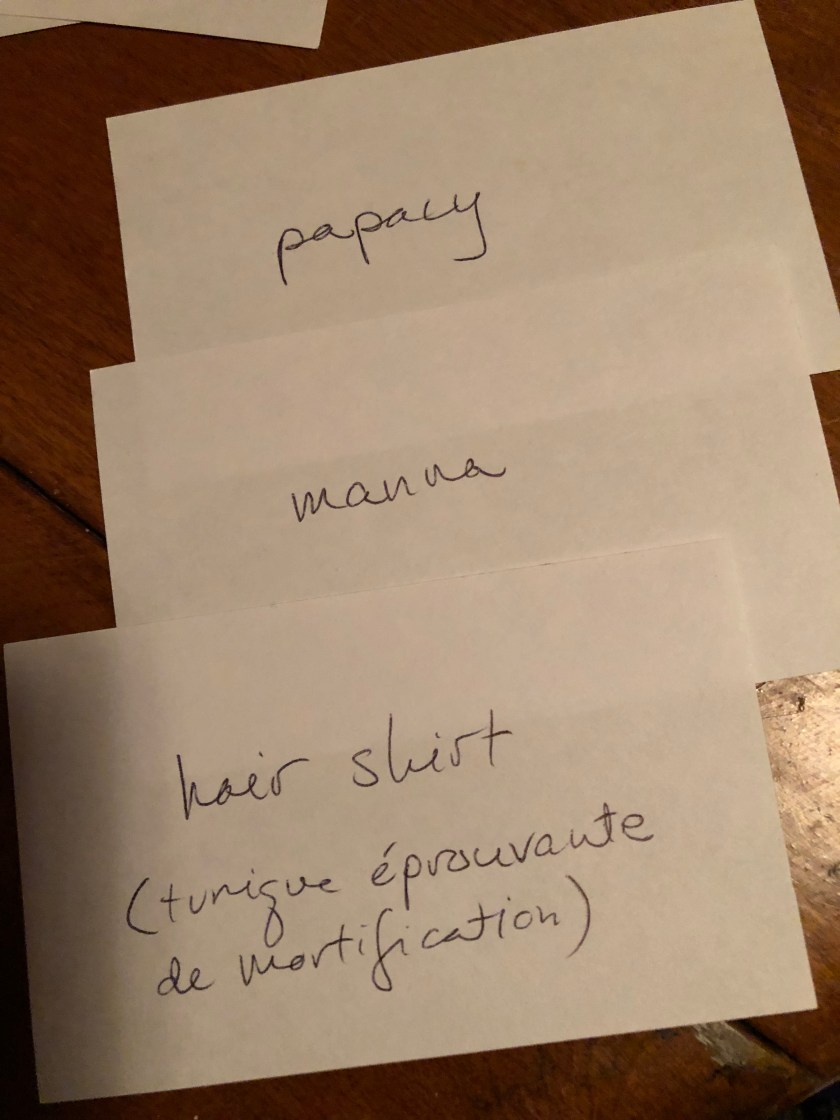 papacy
manna
hair shirt
(tunique éprouvante
de mortification)